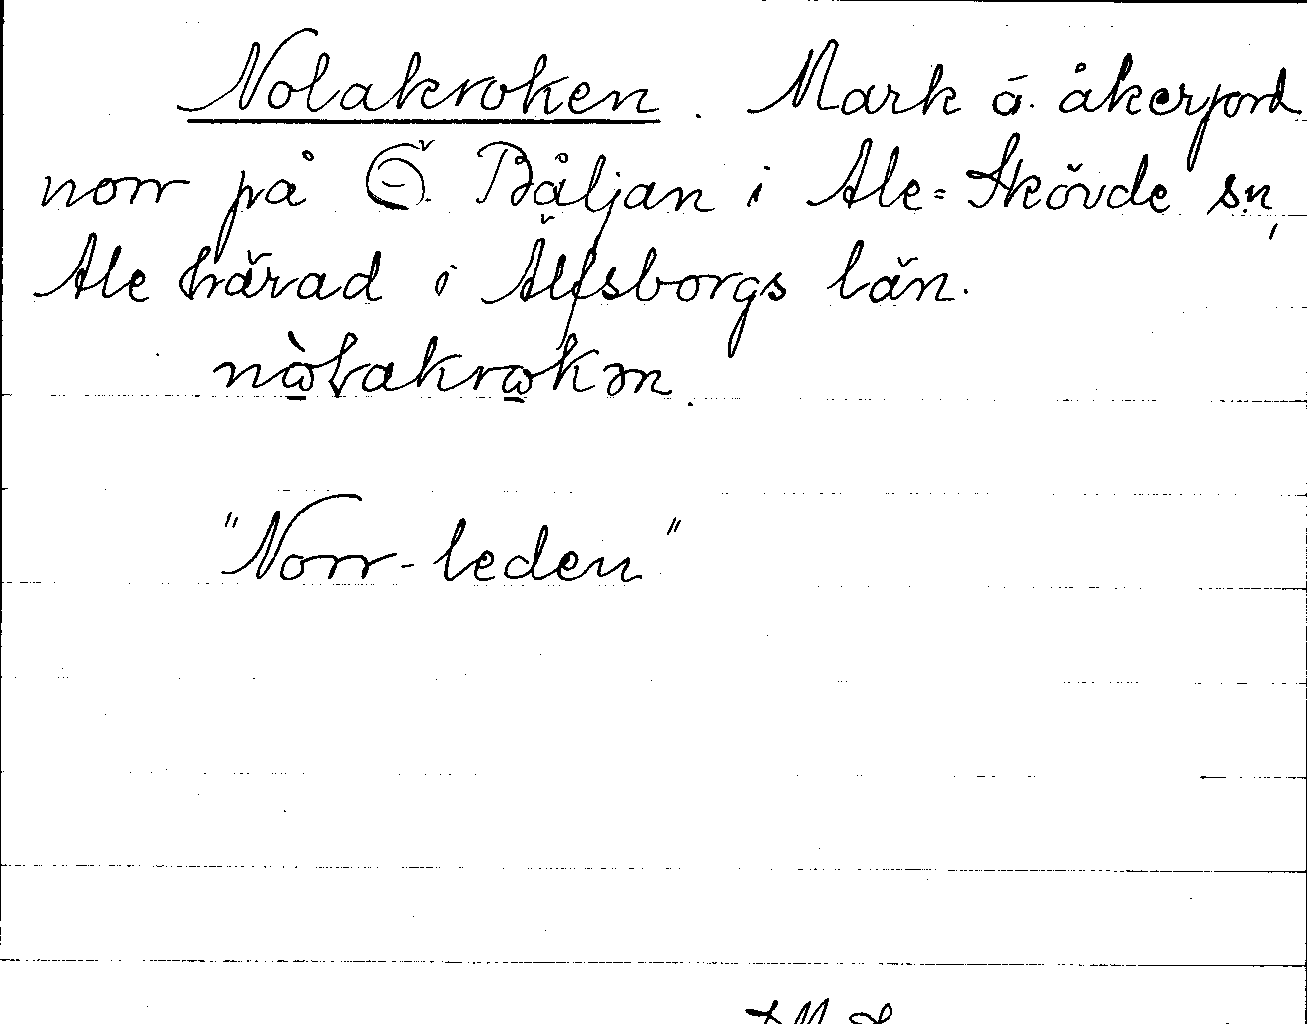 Nolakroken. Mark ó. åkerjord
norr på Ö. Båljan i Ale-Skövde sn,
Ale härad i Älfsborgs län.
nòlakrokən.
"Norr-leden"